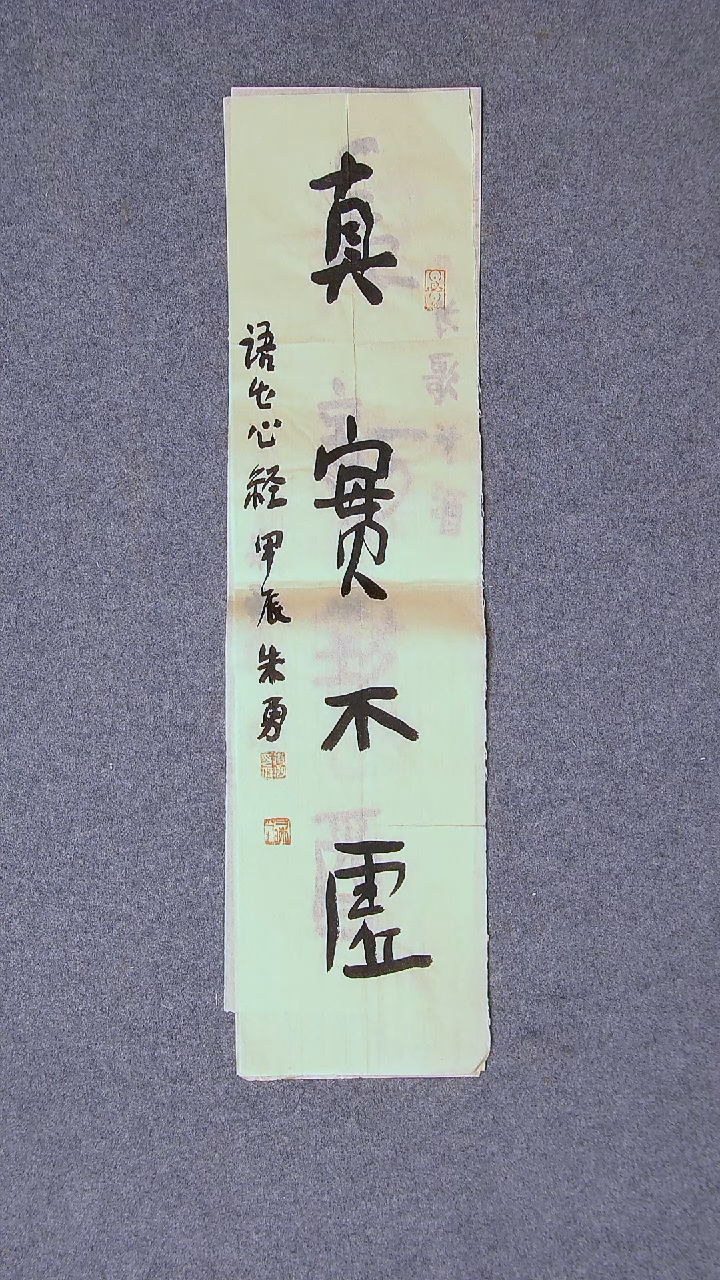 真實不虛
语出心經甲辰朱勇